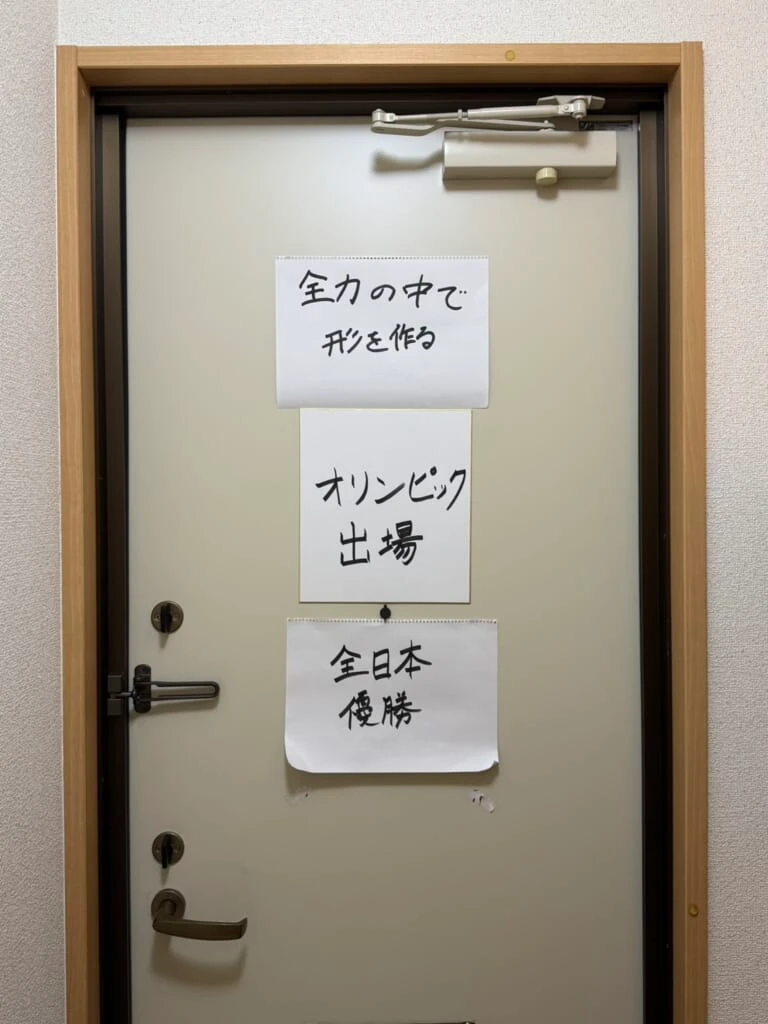 全力の中で
形を作る
オリンピック
出場
全日本
優勝